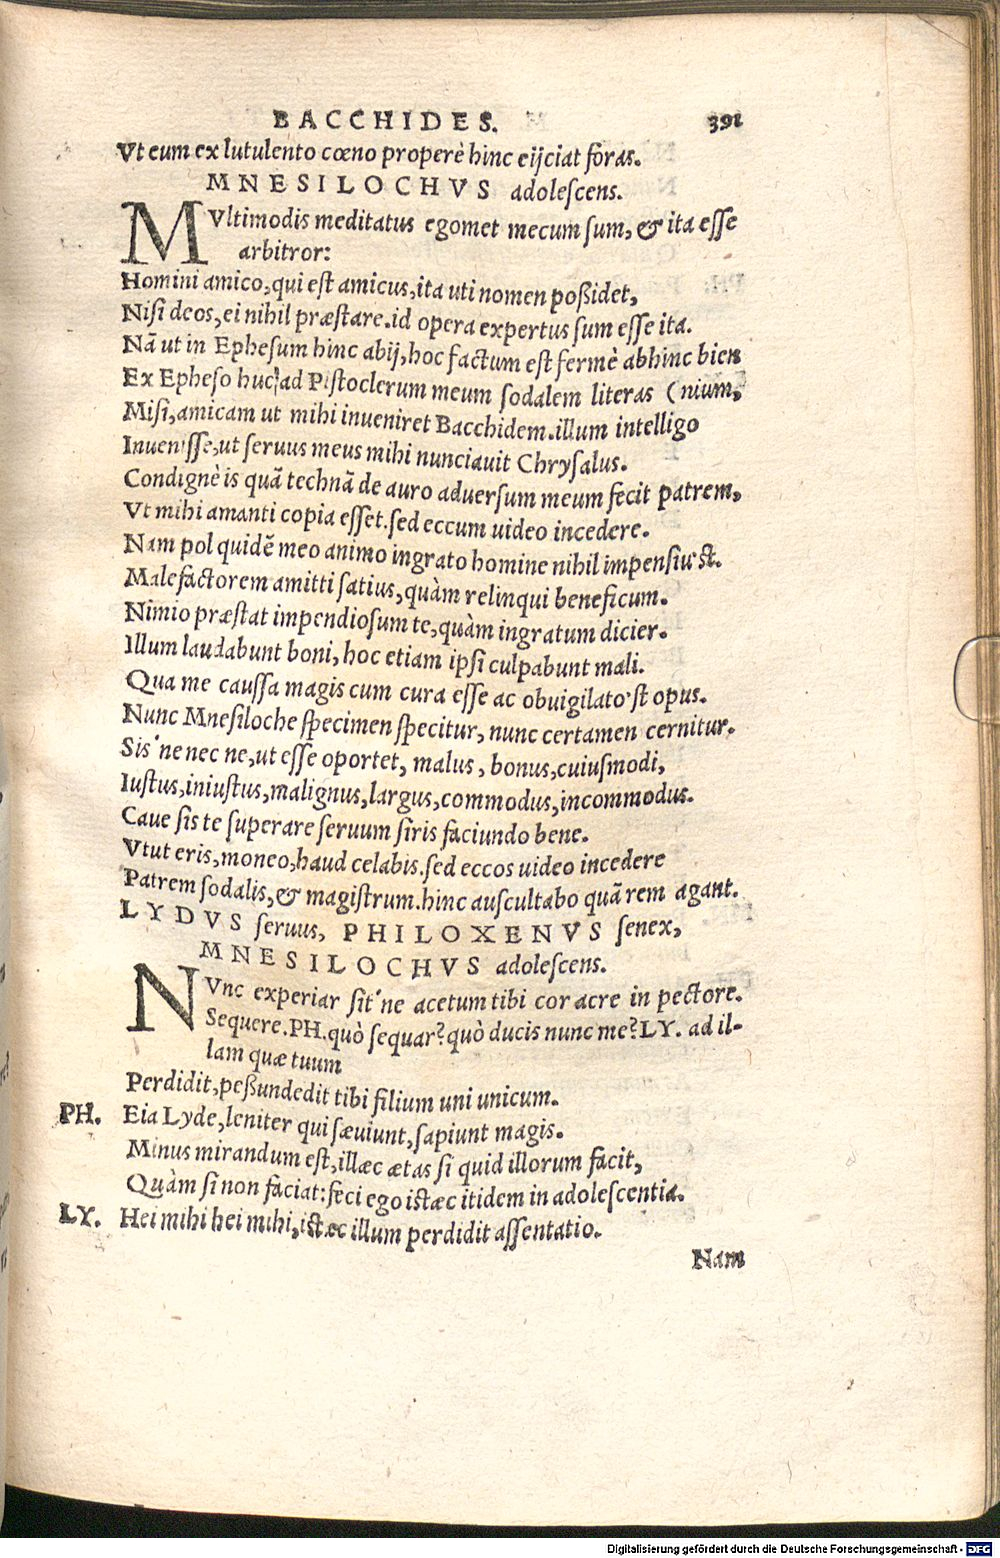 BACCHIDES. 391
Vt eum ex lutulento cœno properè hinc eijciat foras.
MNESILOCHVS adolescens.
MVltimodis meditatus egomet mecum sum, & ita esse
arbitror:
Homini amico, qui est amicus, ita uti nomen poßidet,
Nisi deos, ei nihil præstare. id opera expertus sum esse ita.
Nã ut in Ephesum hinc abij, hoc factum est fermè abhinc bien
Ex Epheso huc, ad Pistoclerum meum sodalem literas (nium,
Misi, amicam ut mihi inueniret Bacchidem. illum intelligo
Inuenisse, ut seruus meus mihi nunciauit Chrysalus.
Condignè is quã technã de auro aduersum meum fecit patrem,
Vt mihi amanti copia esset. sed eccum uideo incedere.
Nam pol quidẽ meo animo ingrato homine nihil impensiu'st.
Malefactorem amitti satius, quàm relinqui beneficum.
Nimio præstat impendiosum te, quàm ingratum dicier.
Illum laudabunt boni, hoc etiam ipsi culpabunt mali.
Qua me caussa magis cum cura esse ac obuigilato'st opus.
Nunc Mnesiloche specimen specitur, nunc certamen cernitur.
Sis'ne nec ne, ut esse oportet, malus, bonus, cuiusmodi,
Iustus, iniustus, malignus, largus, commodus, incommodus.
Caue sis te superare seruum siris faciundo bene.
Vtut eris, moneo, haud celabis. sed eccos uideo incedere
Patrem sodalis, & magistrum. hinc auscultabo quã rem agant.
LYDVS seruus, PHILOXENVS senex,
MNESILOCHVS adolescens.
NVnc experiar sit'ne acetum tibi cor acre in pectore.
Sequere. PH. quò sequar? quò ducis nunc me? LY. ad il-
lam quæ tuum
Perdidit, peßundedit tibi filium uni unicum.
PH. Eia Lyde, leniter qui sæuiunt, sapiunt magis.
Minus mirandum est, illæc ætas si quid illorum facit,
Quàm si non faciat: feci ego istæc itidem in adolescentia.
LY. Hei mihi hei mihi, istæc illum perdidit assentatio.
Nam
Digitalisierung gefördert durch die Deutsche Forschungsgemeinschaft - DFG